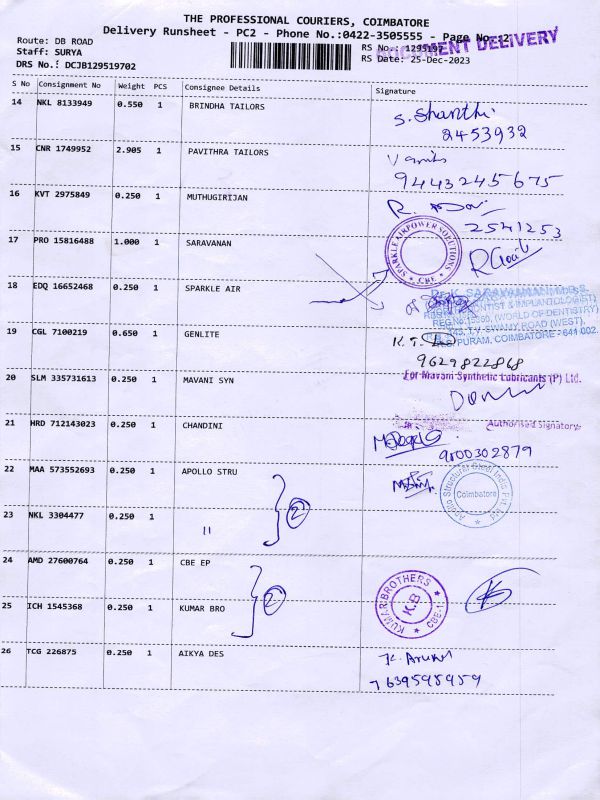 THE PROFESSIONAL COURIERS, COIMBATORE
Delivery Runsheet - PC2 - Phone No.:0422-3505555 - Page No.:2
Route: DB ROAD
Staff: SURYA
DRS No.: DCJB129519702
RS No.: 1295197
RS Date: 25-Dec-2023
DOCUMENT DELIVERY
S No Consignment No Weight PCS Consignee Details Signature
14 NKL 8133949 0.550 1 BRINDHA TAILORS S. Shanthi
2453932
15 CNR 1749952 2.905 1 PAVITHRA TAILORS
9443245675
16 KVT 2975849 0.250 1 MUTHUGIRIJAN
2541253
17 PRO 15816488 1.000 1 SARAVANAN
SPARKLE AIRPOWER SOLUTIONS
* CBE *
18 EDQ 16652468 0.250 1 SPARKLE AIR
Dr. K. SARAVANAN, M.D.S.
(WORLD OF DENTISTRY)
SWAMY ROAD (WEST),
R.S. PURAM, COIMBATORE - 641 002.
19 CGL 7100219 0.650 1 GENLITE
9629822868
For Mavani Synthetic Lubricants (P) Ltd.
20 SLM 335731613 0.250 1 MAVANI SYN
Authorised Signatory
21 HRD 712143023 0.250 1 CHANDINI
9800302879
22 MAA 573552693 0.250 1 APOLLO STRU
2
Apollo Structural Steel India Pvt Ltd
Coimbatore
23 NKL 3304477 0.250 1 "
24 AMD 27600764 0.250 1 CBE EP
2
KUMAR BROTHERS
K.B
* CBE-1 *
25 ICH 1545368 0.250 1 KUMAR BRO
26 TCG 226875 0.250 1 AIKYA DES K. Arukul
7639598959